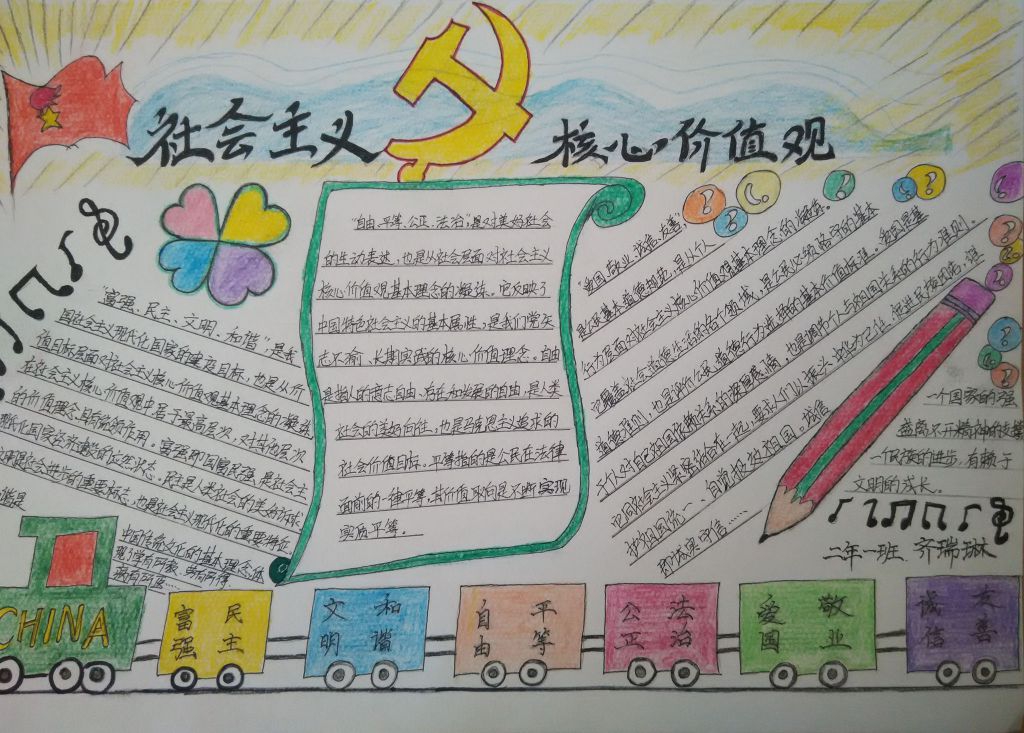 社会主义 核心价值观
"富强、民主、文明、和谐"是我
国社会主义现代化国家的建设目标,也是从价
值目标层面对社会主义核心价值观基本理念的凝练
在社会主义核心价值观中居于最高层次,对其他层次
的价值理念具有统领作用。富强即国富民强,是社会主
现代化国家经济建设的应然状态。民主是人类社会的美好诉求
文明是社会进步的重要标志,也是社会主义现代化的重要特征
和谐是
中国传统文化的基本理念,体
现了学有所教、劳有所得、
病有所医……
"自由、平等、公正、法治"是对美好社会
的生动表述,也是从社会层面对社会主义
核心价值观基本理念的凝练。它反映了
中国特色社会主义的基本属性,是我们党矢
志不渝、长期实践的核心价值理念。自由
是指人的意志自由、存在和发展的自由,是人类
社会的美好向往,也是马克思主义追求的
社会价值目标。平等指的是公民在法律
面前的一律平等,其价值取向是不断实现
实质平等。
爱国、敬业、诚信、友善,"
是公民基本道德规范,是从个人
行为层面对社会主义核心价值观基本理念的凝练。
它覆盖社会道德生活的各个领域,是公民必须恪守的基本
道德准则,也是评价公民道德行为选择的基本价值标准。爱国是基
于个人对自己祖国依赖关系的深厚感情,也是调节个人与祖国关系的行为准则。
它同社会主义紧密结合在一起,要求人们以振兴中华为己任,促进民族团结、维
护祖国统一、自觉报效祖国。诚信
即诚实守信……
一个国家的强
盛离不开精神的支撑
一个民族的进步,有赖于
文明的成长。
二年一班 齐瑞琳
CHINA
富强 民主
文明 和谐
自由 平等
公正 法治
爱国 敬业
诚信 友善